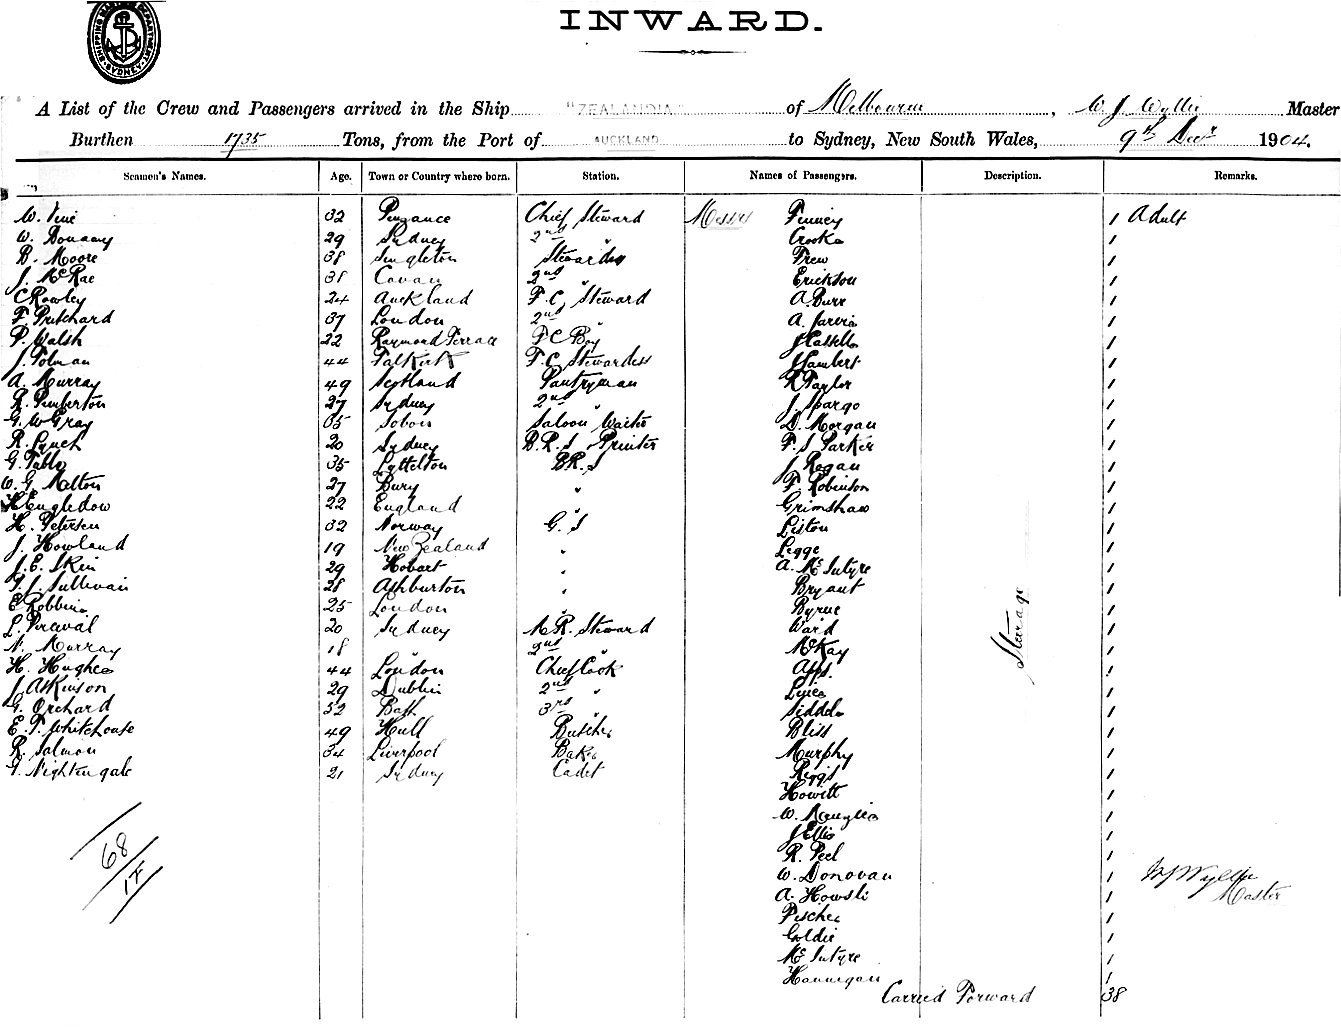 SHIPPING MASTER'S DEPARTMENT SYDNEY
INWARD.
A List of the Crew and Passengers arrived in the Ship "ZEALANDIA" of Melbourne, W. J. Wyllie Master
Burthen 1735 Tons, from the Port of AUCKLAND to Sydney, New South Wales, 9th Decr 1904.
Seamen's Names. Age. Town or Country where born. Station. Names of Passengers. Description. Remarks.
32 Penzance Chief Steward Messrs Finney 1 Adult
29 Sydney 2nd " Crooke 1
B. Moore 38 Singleton Steward Frew 1
J. McRae 38 Cavan 2nd " Erickson 1
C Rowley 24 Auckland F. C. Steward A. Burr 1
F Pritchard 37 London 2nd " A. Jarvis 1
P. Walsh 22 Raymond Terrace F C Boy J Cassells 1
J. Tolman 44 Falkirk F. C. Stewardess J Lambert 1
A. Murray 49 Scotland Pantryman R Taylor 1
R. Pemberton 27 Sydney 2nd " J. Spargo 1
G. W Gray 35 Saloon Waiter D. Morgan 1
R. Lynch 20 Sydney B. R. S. Printer F. S Parker 1
G. 35 Lyttelton B R. S J. Regan 1
W. G. Melton 27 Bury " F. Robinson 1
H Engledow 22 England " Grimshaw 1
H. Petersen 32 Norway G. S Liston 1
J. Howland 19 New Zealand " Legge 1
J. E. Skin 29 Hobart " A. McIntyre 1
T. J. Sullivan 28 Ashburton " Bryant 1
E Robbins 25 London " Byrne 1
L. Percival 20 Sydney M. R. Steward Ward 1
N. Murray 18 " 2nd " McKay 1
H. Hughes 44 London Chief Cook App 1
J Atkinson 29 Dublin 2nd " 1
G. Orchard 52 Bath 3rd " Siddds 1
E. T. Whitehouse 49 Hull Butcher Bliss 1
R. Salmon 34 Liverpool Baker Murphy 1
G. Nightengale 21 Sydney Cadet Riggs 1
Howitt 1
W. 1
J Ellis 1
R. Peel 1
W. Donovan 1
A. Howsli 1
Fischer 1
Goldie 1
McIntyre 1
Hannigan 1
Steerage
68
17
W J Wyllie
Master
Carried Forward 38